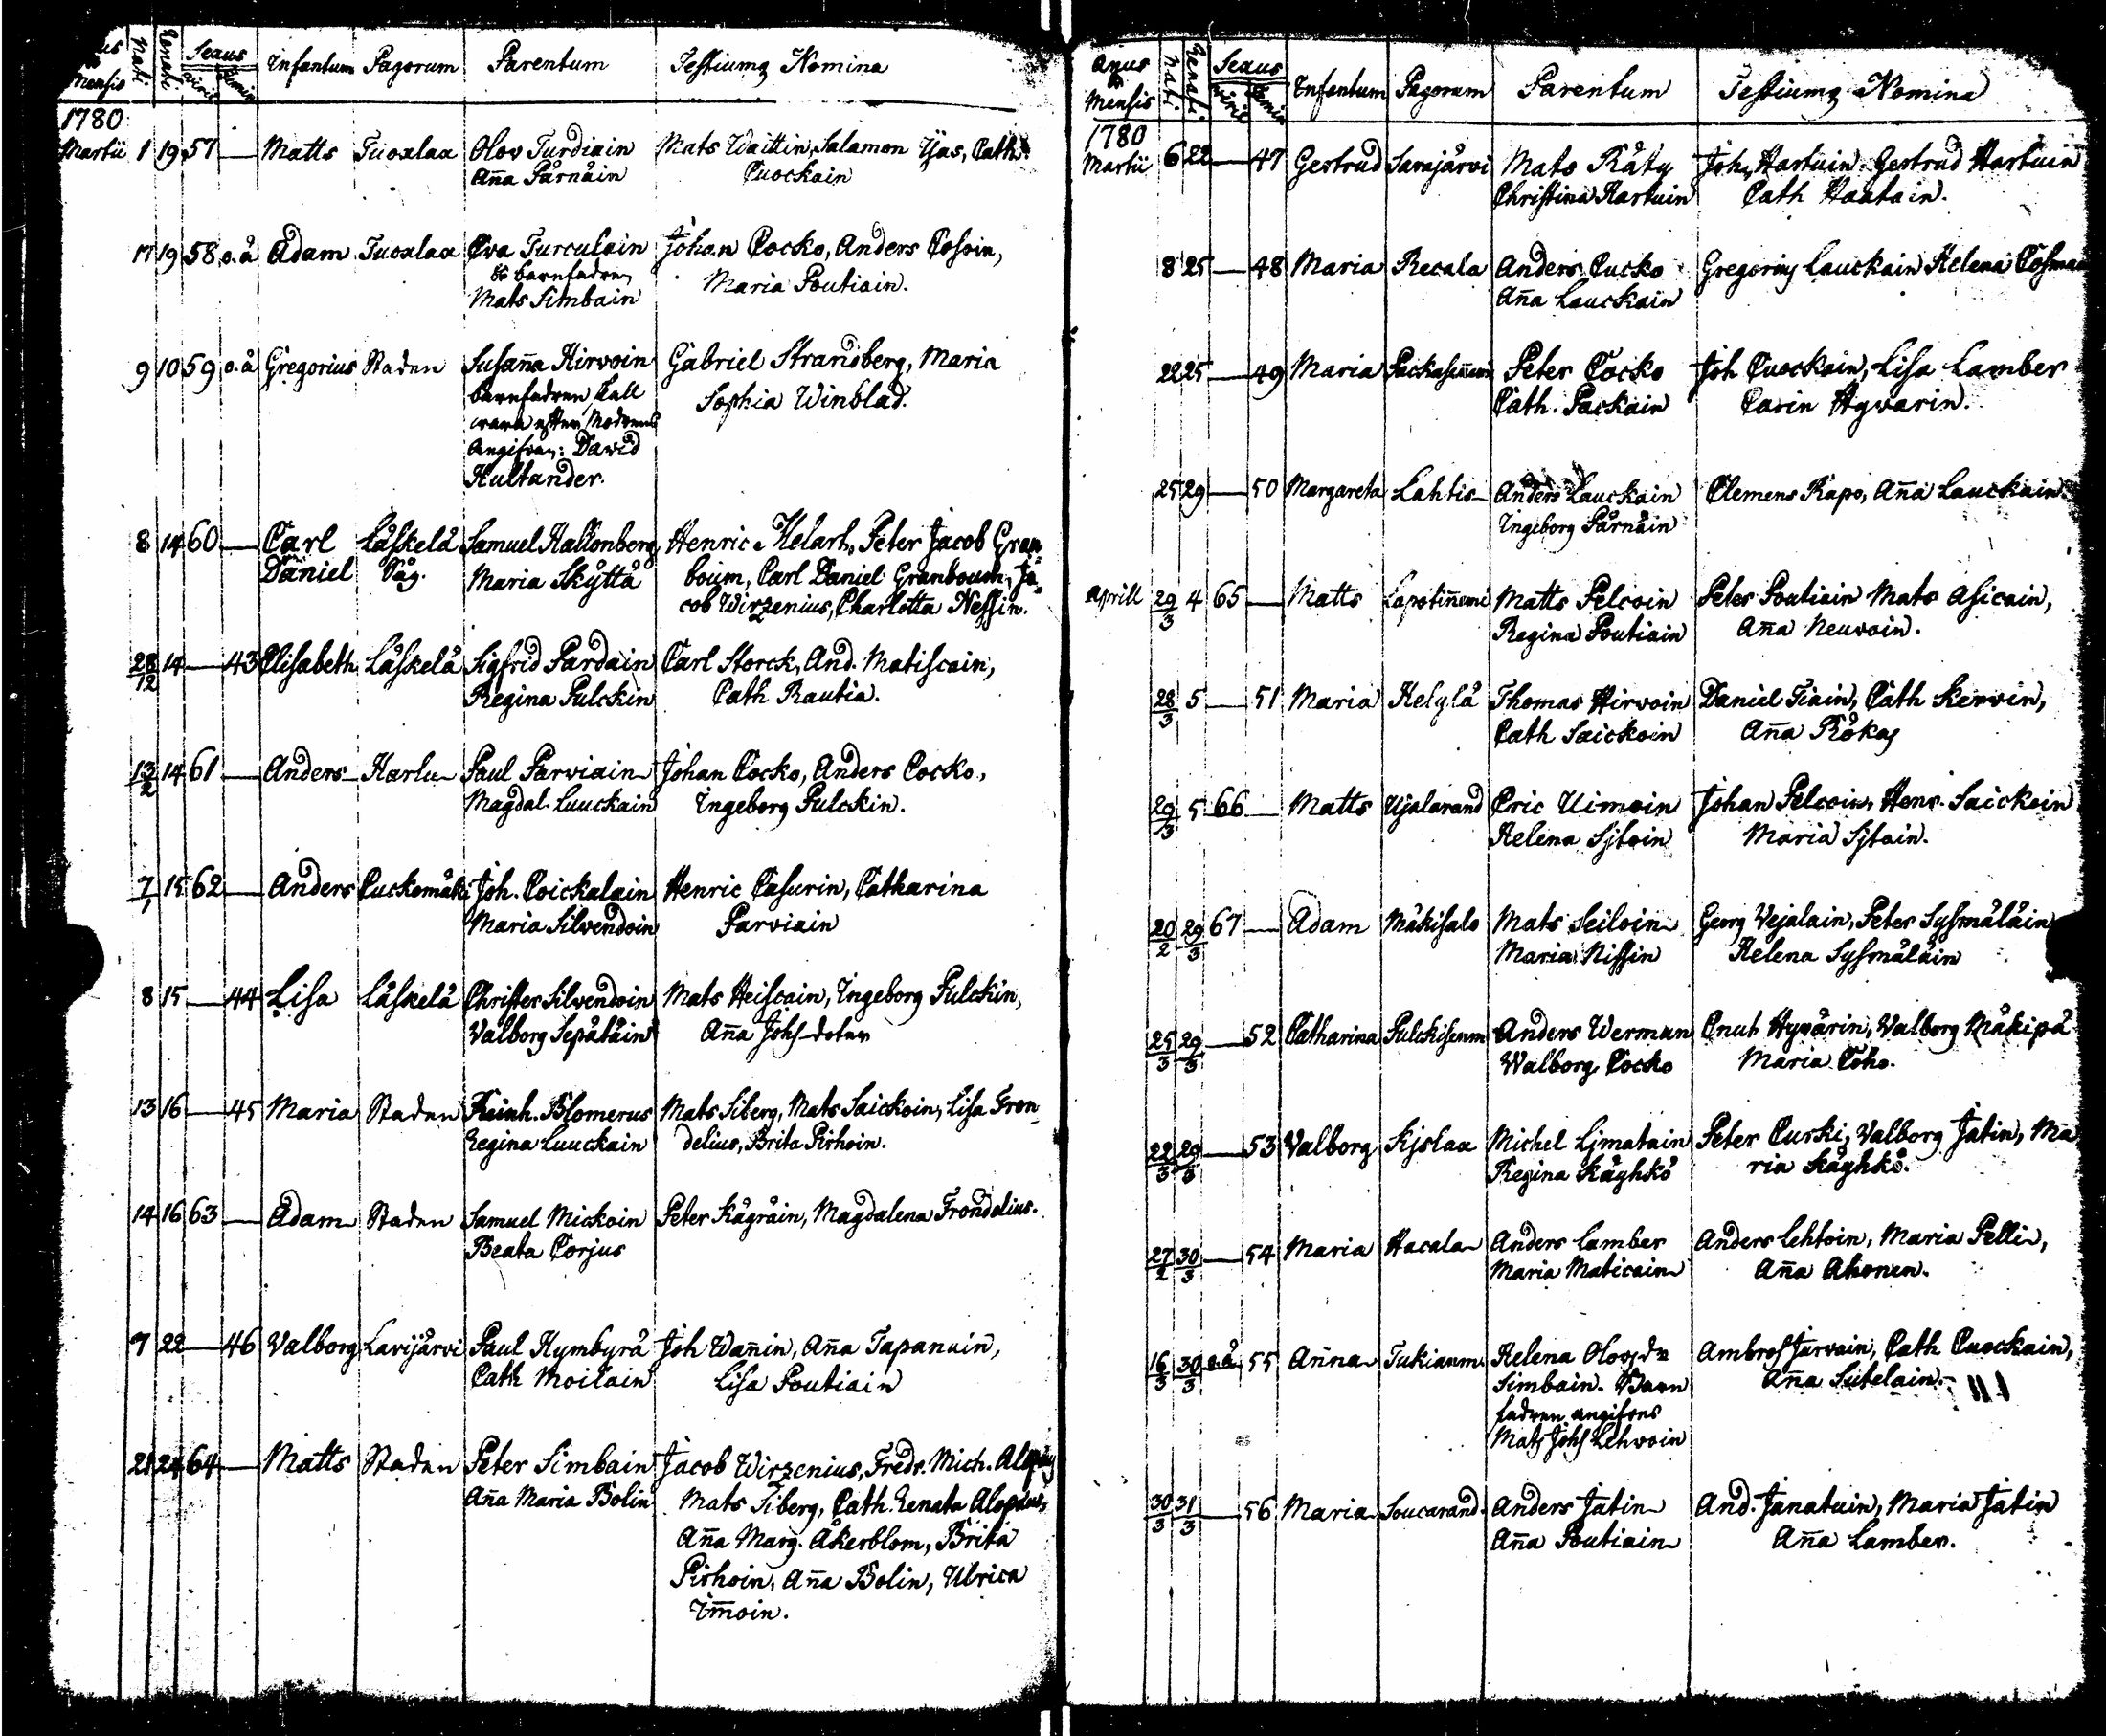 Anus & Mensis Nati Renati Sexus Virile Femin Infantum Pagorum Parentum Testiumq Nomina
1780
Martii 1 19 57 — Matts Tuoxlax Olov Turdiain Mats Waittin, Salamon Ijas, Cath.
Aña Pärnäin Cuockain
17 19 58 o.ä Adam Tuoxlax Eva Turculain Johan Cocko, Anders Cosoin,
& barnfadren Maria Poutiain.
Mats Simbain
9 10 59 o.ä Gregorius Staden Susaña Hirvoin Gabriel Strandberg, Maria
barnfadren skall Sophia Winblad.
wara efter Modrens
Angifvan: David
Hultander.
8 14 60 — Carl Läskelä Samuel Hallonberg Henric Helarh, Peter Jacob Gran=
Daniel Såg. Maria Skyttä boum, Carl Daniel Granboum, Ja=
cob Wirzenius, Charlotta Nessin.
28/12 14 — 43 Elisabeth Läskelä Sigfrid Pardain Carl Storck, And. Matiscain,
Regina Pulckin Cath Rautia.
13/2 14 61 — Anders Harlu Paul Parviain Johan Cocko, Anders Cocko,
Magdal. Luuckain Ingeborg Pulckin.
7/1 15 62 — Anders Cuckomäki Joh. Coickalain Henric Casurin, Catharina
Maria Silvendoin Parviain
8 15 — 44 Lisa Läskelä Christer Silvendoin Mats Heiscain, Ingeborg Pulckin,
Valborg Sepäläin Aña Johs doter
13 16 — 45 Maria Staden Reinh. Blomerus Mats Siberg, Mats Saickoin, Lisa Fron
Regina Luuckain delius, Brita Pirhoin.
14 16 63 — Adam Staden Samuel Mickoin Peter Kägräin, Magdalena Frondelius.
Beata Corjus
7 22 — 46 Valborg Lavijärvi Paul Hymbyrä Joh Wañin, Aña Tapanain,
Cath Moilain Lisa Poutiain
21 24 64 — Matts Staden Peter Simbain Jacob Wirzenius, Fredr. Mich. Alopæus
Aña Maria Bolin Mats Siberg, Cath. Renata Alopæus,
Aña Marg. Åkerblom, Brita
Pirhoin, Aña Bolin, Ulrica
Im̄oin.
Anus & Mensis Nati Renati Sexus Virile Femin Infantum Pagorum Parentum Testiumq Nomina
1780
Martii 6 22 — 47 Gertrud Sarajärvi Mats Räty Joh, Hartuin, Gertrud Hartuin
Christina Hartuin Cath Haatain.
8 25 — 48 Maria Recala Anders Cucko Gregorius Lauckain Helena Cosmain
Aña Lauckain
22 25 — 49 Maria Packasiñemi Peter Cocko Joh Cuockain, Lisa Lamber
Cath. Packain Carin Hyvärin.
25 29 — 50 Margareta Lahtis Anders Lauckain Clemens Rapo, Aña Lauckain.
Ingeborg Pärnäin
Aprill 29/3 4 65 — Matts Lapotiñemi Matts Pelcoin Peter Poutiain Mats Asicain,
Regina Poutiain Aña Neuvoin.
28/3 5 — 51 Maria Helylä Thomas Hirvoin Daniel Tiain, Cath Kervin,
Cath Saickoin Aña Rökas
29/3 5 66 — Matts Ujalarand Eric Uimoin Johan Pelcoin, Henr. Saickoin
Helena Sjtoin Maria Sjtain.
20/2 29/3 67 — Adam Mäkisalo Mats Seiloin Georg Vejalain, Peter Sysmäläin
Maria Nissin Helena Sysmäläin
25/3 29/3 — 52 Catharina Pulckisenm Anders Werman Cnut Hyvärin, Valborg Mäkipä
Walborg Cocko Maria Coho.
22/3 29/3 — 53 Valborg Kjslax Michel Ljmatain Peter Curki, Valborg Jatin, Ma
Regina Käyhkö ria Käyhkö.
27/2 30/3 — 54 Maria Hacala Anders Lamber Anders Lehtoin, Maria Pelli,
Maria Maticain Aña Ahonen.
16/3 30/3 o.ä 55 Anna Tukianm Helena Olovsdr Ambros Jurvain, Cath Cuockain,
Simbain. Barn Aña Sutelain.
fadren angifves
Mats Johs Lehvoin
30/3 31/3 — 56 Maria Soucarand. Anders Jatin And. Janatuin, Maria Jatin
Aña Poutiain Aña Lamber.